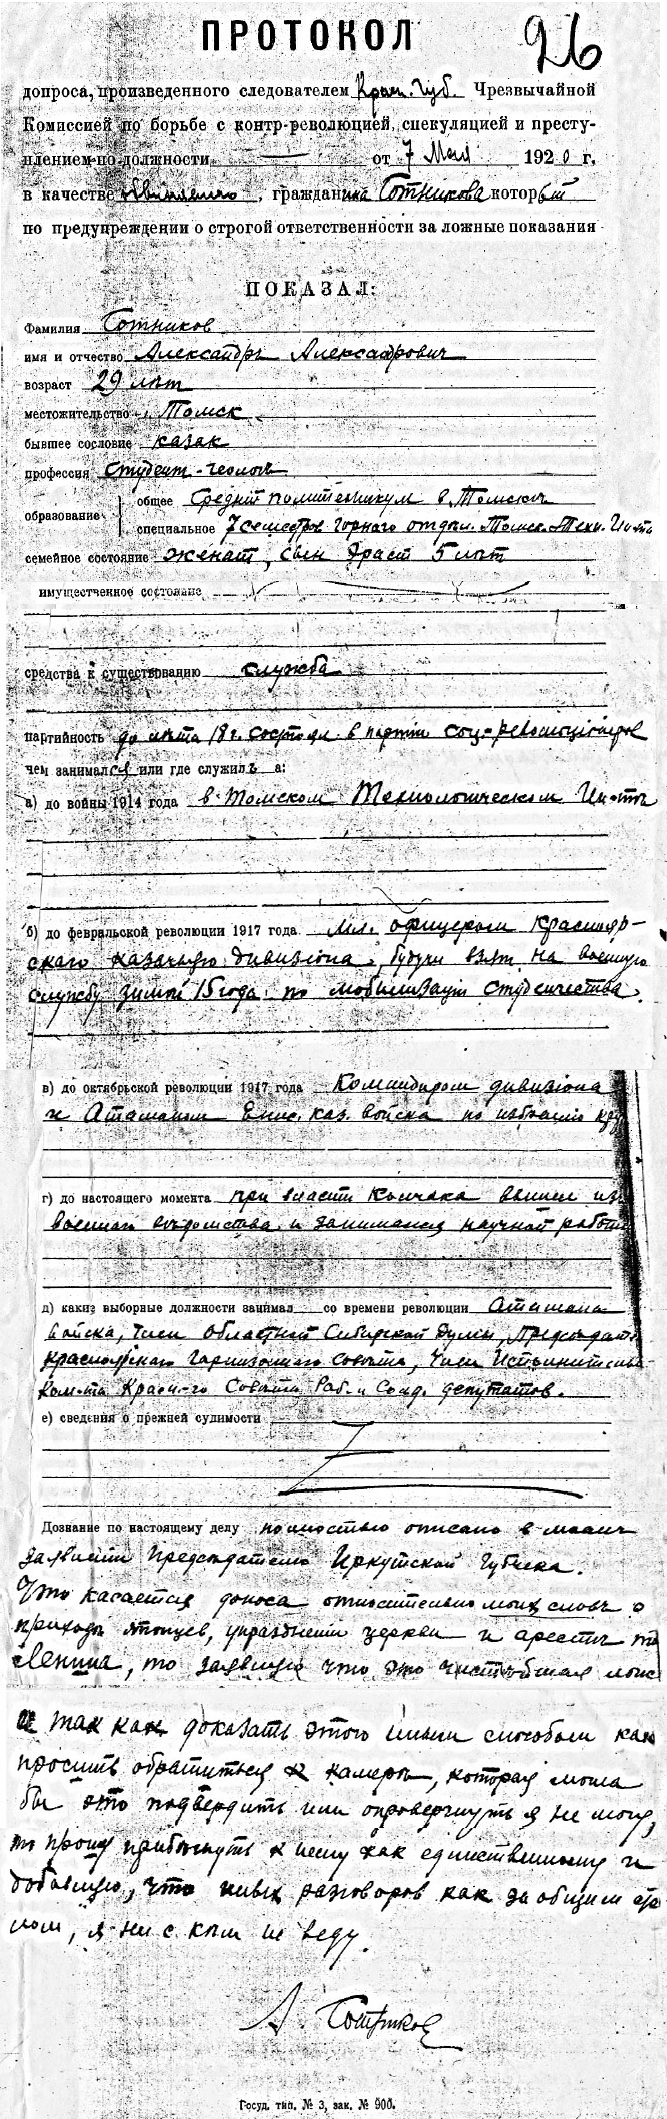 ПРОТОКОЛ
96
допроса, произведенного следователем Крас. Губ. Чрезвычайной
Комиссией по борьбе с контр-революцией, спекуляцией и престу-
плением по должности — от 7 Мая 1920 г.
в качестве обвиняемого, гражданина Сотникова который
по предупреждении о строгой ответственности за ложные показания
ПОКАЗАЛ:
Фамилия Сотников
имя и отчество Александръ Александрович
возраст 29 лѣт
местожительство г. Томск
бывшее сословие казак
профессия студент-геологъ
образование
общее Средній политехникум в Томскѣ
специальное 7 семестров Горнаго отдѣл. Томск. Техн. Ин-та
семейное состояние женат, сын Эраст 5 лѣт
имущественное состояние
средства к существованию служба
партийность до лѣта 18 г. состоял в партіи соц-революціонеров
чем занимался или где служилъ а:
а) до войны 1914 года в Томском Технологическом Ин-тѣ
б) до февральской революции 1917 года мл. офицером Краснояр-
скаго казачьяго дивизіона, будучи взят на военную
службу зимой 15 года по мобилизаціи студенчества.
в) до октябрьской революции 1917 года Командиром дивизіона
и Атаманом Енис. каз. войска по избранію
г) до настоящего момента при власти Колчака вышел из
военнаго вѣдомства и занимался научной работ
д) какиз выборные должности занимал со времени революции Атамана
войска, Член Областной Сибирской Думы, Предсѣдат
Красноярскаго Гарнизоннаго Совѣта, Член Исполнительн.
Ком-та Красн-го Совѣта Раб. и Солд. депутатов.
е) сведения о прежней судимости
Дознание по настоящему делу полностью описано в моем
заявленіи Предсѣдателю Иркутской Губчека.
Что касается доноса относительно моих словъ о
приходѣ японцев, упраздненіи церкви и арестѣ т.
Ленина, то заявляю что это чистѣйшая ложь
и так как доказать этого иным способом как
просить обратиться к камерѣ, которая могла
бы это подтвердить или опровергнуть я не могу,
то прошу прибѣгнуть к нему как единственному и
добавляю, что никаких разговоров как за общим сто
лом, я ни с кѣм не веду.
А. Сотников
Госуд. тип. № 3, зак. № 900.